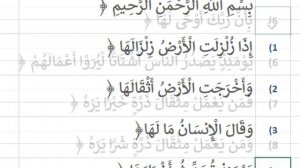 بِسْمِ اللَّهِ الرَّحْمَنِ الرَّحِيمِ ﴿
بِأَنَّ رَبَّكَ أَوْحَى لَهَا ﴿ (5
إِذَا زُلْزِلَتِ الْأَرْضُ زِلْزَالَهَا ﴿ (1
يَوْمَئِذٍ يَصْدُرُ النَّاسُ أَشْتَاتًا لِيُرَوْا أَعْمَالَهُمْ ﴿ (6
وَأَخْرَجَتِ الْأَرْضُ أَثْقَالَهَا ﴿ (2
فَمَنْ يَعْمَلْ مِثْقَالَ ذَرَّةٍ خَيْرًا يَرَهُ ﴿ (7
وَقَالَ الْإِنْسَانُ مَا لَهَا ﴿ (3
وَمَنْ يَعْمَلْ مِثْقَالَ ذَرَّةٍ شَرًّا يَرَهُ ﴿ (8